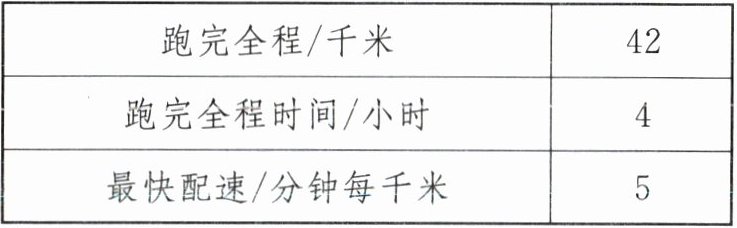 跑完全程/千米 42
跑完全程时间/小时 4
最快配速/分钟每千米 5